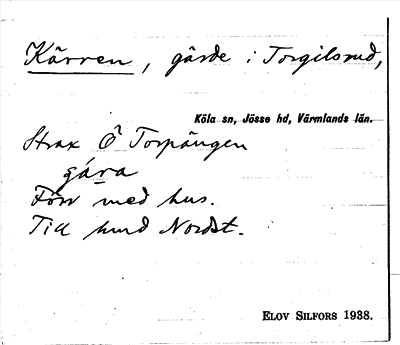 Kärren, gärde i Torgilsrud,
Köla sn, Jösse hd, Värmlands län.
Strax Ö Torpängen
gára
Förr med hus.
Till hmd Nordst.
ELOV SILFORS 1938.